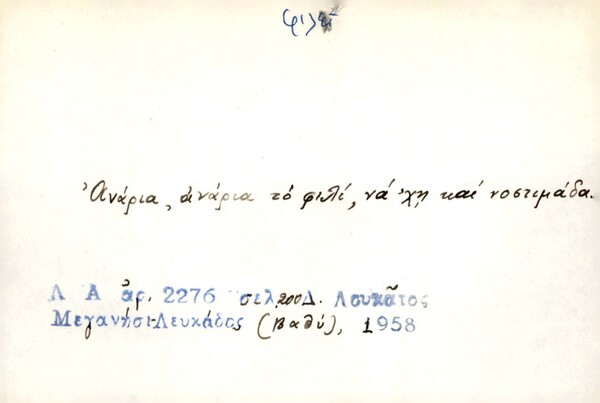 φιλί
Ἀνάρια, ἀνάρια τό φιλί, νά 'χῃ καί νοστιμάδα.
Λ Α ἀρ. 2276 σελ. 200 Δ. Λουκᾶτος
Μεγανήσι-Λευκάδος (Βαθύ), 1958